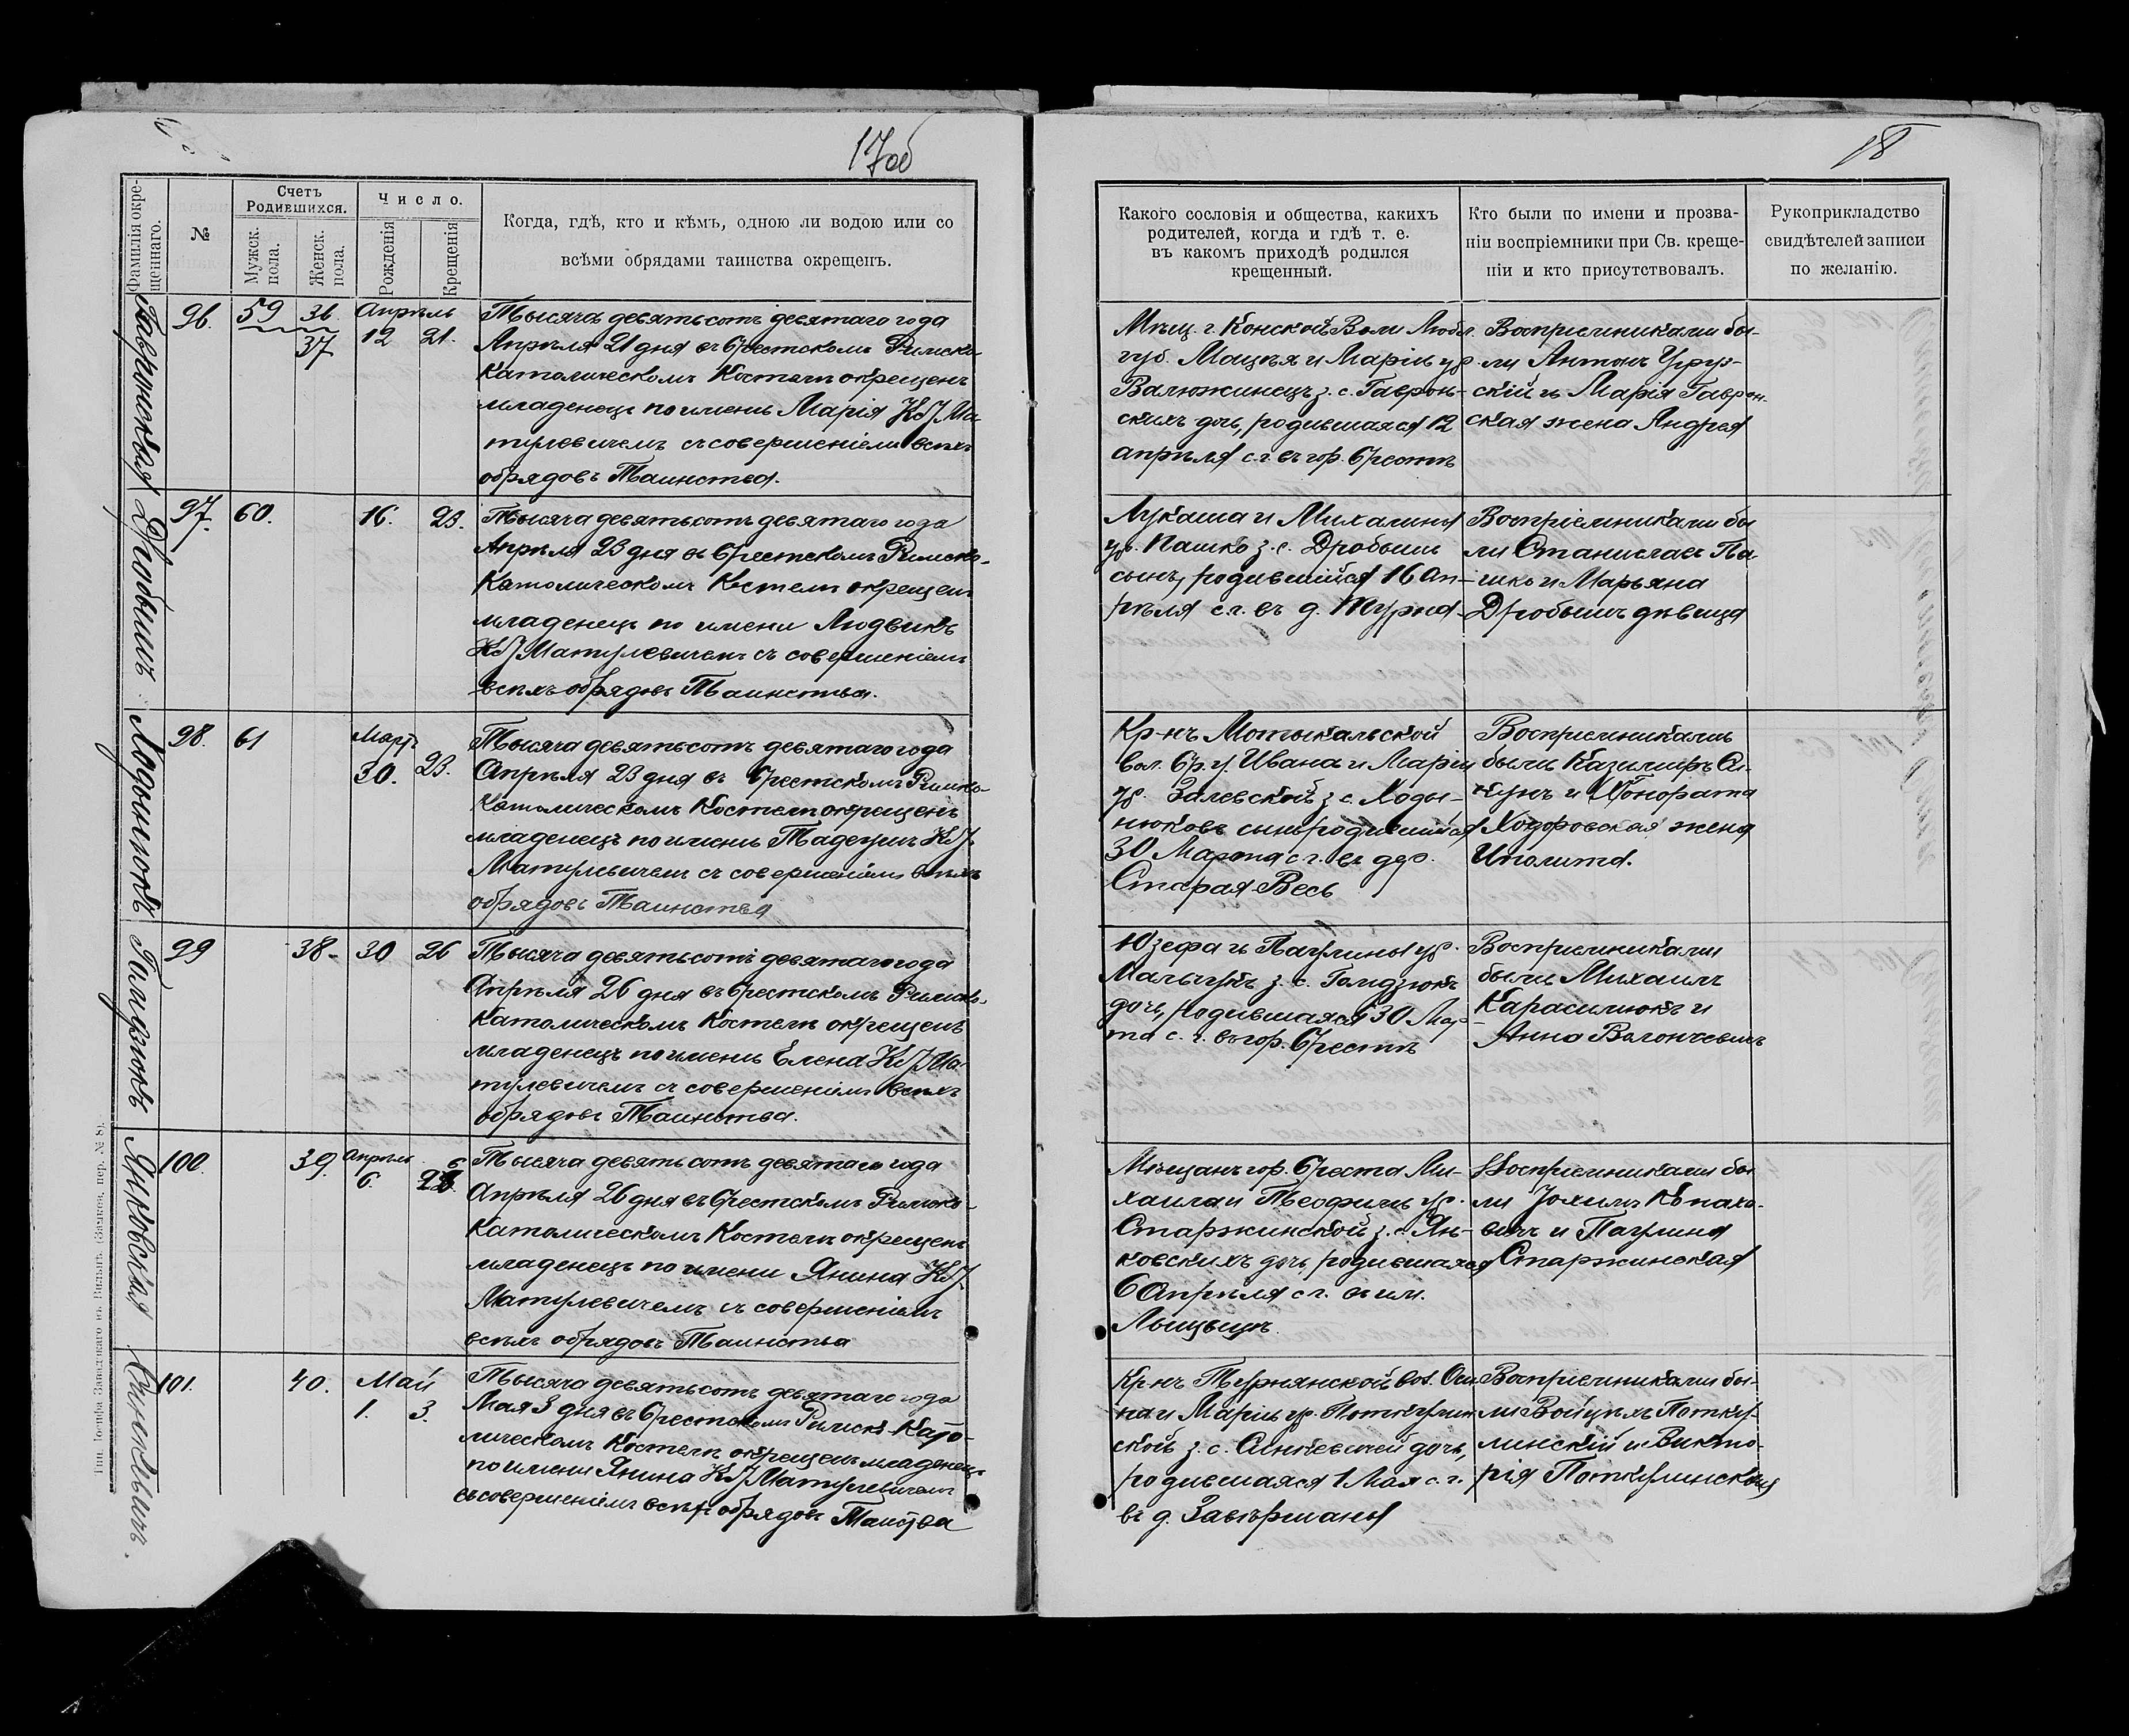 17об
Фамилія окре-
щеннаго.
№
Счетъ
Родившихся.
Мужск.
пола.
Женск.
пола.
Число.
Рожденія
Крещенія
Когда, гдѣ, кто и кѣмъ, одною ли водою или со
всѣми обрядами таинства окрещенъ.
Гавронская
96.
59
36.
37
Апрѣль
12
21.
Тысяча девятьсотъ девятаго года
Апрѣля 21 дня въ Брестскомъ Римско-
Католическомъ Костелѣ окрещенъ
младенецъ по имени Марія Кс. Ма-
тулевичемъ съ совершеніемъ всѣхъ
обрядовъ Таинства.
Дробышъ
97.
60.
16.
23.
Тысяча девятьсотъ девятаго года
Апрѣля 23 дня въ Брестскомъ Римско-
Католическомъ Костелѣ окрещенъ
младенецъ по имени Людвикъ
Матулевичемъ съ совершеніемъ
всѣхъ обрядовъ Таинства.
Ходынюкъ
98.
61
Мартъ
30.
23.
Тысяча девятьсотъ девятаго года
Апрѣля 23 дня въ Брестскомъ Римско-
Католическомъ Костелѣ окрещенъ
младенецъ по имени Тадеушъ
Матулевичемъ съ совершеніемъ всѣхъ
обрядовъ Таинства
Галдзюкъ
99
38-
30
26
Тысяча девятьсотъ девятаго года
Апрѣля 26 дня въ Брестскомъ Римско-
Католическомъ Костелѣ окрещенъ
младенецъ по имени Елена Кс. Ма-
тулевичемъ съ совершеніемъ всѣхъ
обрядовъ Таинства.
Янковская
100.
39.
Апрѣль
6.
26
Тысяча девятьсотъ девятаго года
Апрѣля 26 дня въ Брестскомъ Римско-
Католическомъ Костелѣ окрещенъ
младенецъ по имени Янина
Матулевичемъ съ совершеніемъ
всѣхъ обрядовъ Таинства
Синкевичъ.
101.
40.
Май
1.
3.
Тысяча девятьсотъ девятаго года
Мая 3 дня въ Брестскомъ Римско-Като-
лическомъ Костелѣ окрещенъ младенецъ
по имени Янина Матулевичемъ
съ совершеніемъ всѣхъ обрядовъ
18
Какого сословія и общества, какихъ
родителей, когда и гдѣ т. е.
въ какомъ приходѣ родился
крещенный.
Кто были по имени и прозва-
ніи воспріемники при Св. креще-
ніи и кто присутствовалъ.
Рукоприкладство
свидѣтелей записи
по желанію.
Мѣщ. г. Конской Воли Любл.
губ. Мацѣя и Маріи ур.
Валюжинецъ з. с. Гаврон-
скихъ дочь, родившаяся 12
апрѣля с.г. въ гор. Брестѣ
Воспріемниками бы-
ли Антонъ
скій и Марія Гаврон-
ская жена Андрея
Лукаша и Михалины
ур. Пашко з. с. Дробышъ
сынъ, родившійся 16 Ап-
рѣля с.г. въ д. Турна
Воспріемниками бы
ли Станиславъ Па-
шко и Марьяна
Дробышъ дѣвица
Кр-нъ Мотыкальской
вол. Бр. у. Ивана и Маріи
ур. Залевской з. с. Ходы-
нюковъ сынъ родившійся
30 Марта с.г. въ дер.
Старая Весь
Воспріемниками
были Казимиръ
и Гонората
Ходоровская жена
Иполита.
Юзефа и Паулины ур.
Мальчукъ з. с. Галдзюкъ
дочь, родившаяся 30 Мар-
та с. г. въ гор. Брестѣ
Воспріемниками
были Михаилъ
Карасилюкъ и
Анна
Мѣщанъ гор. Бреста Ми-
хаила и Теофили ур.
Старжинской з. с. Ян-
ковскихъ дочь, родившаяся
6 Апрѣля с.г. въ им.
Воспріемниками бы
ли
вичъ и Паулина
Старжинская
Кр-нъ Турнянской вол. Оси
па и Маріи ур. Поткулин
ской з. с. Синкевичей дочь,
родившаяся 1 Мая с. г.
въ д.
Воспріемниками бы-
ли Войцѣхъ Потку-
линскій и Викто-
рія Поткулинская